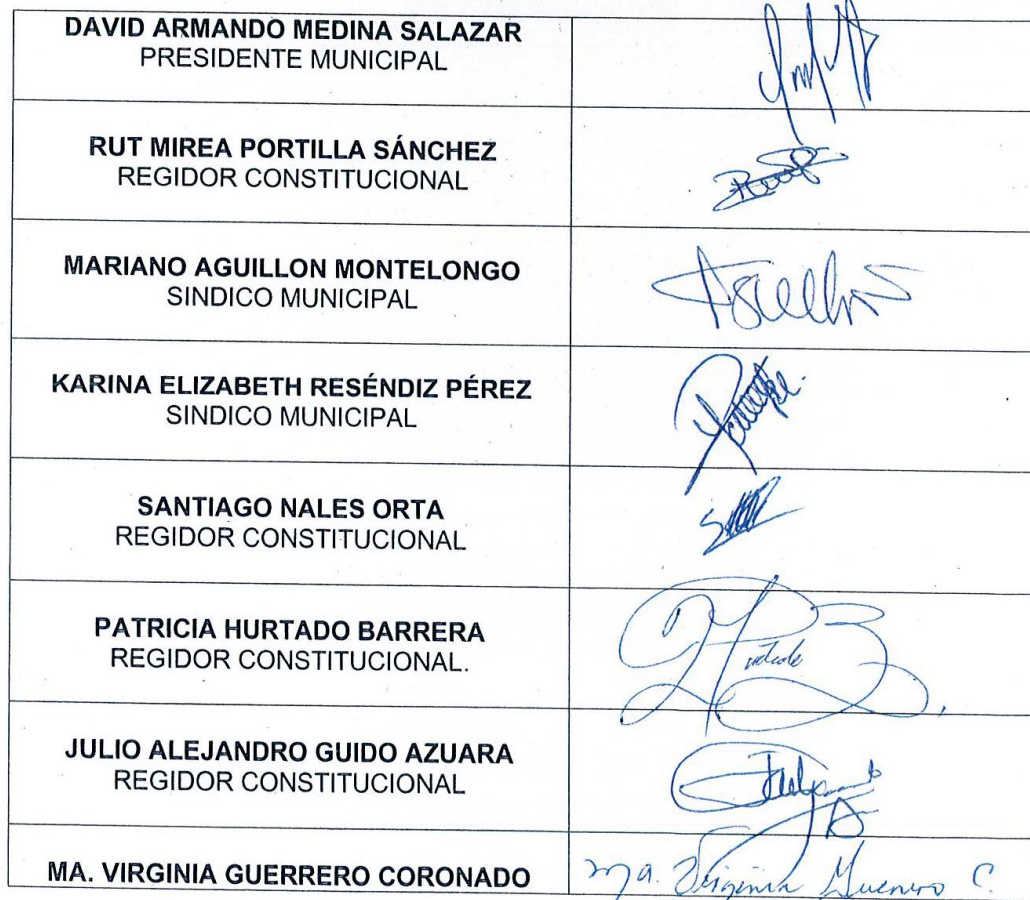 DAVID ARMANDO MEDINA SALAZAR
PRESIDENTE MUNICIPAL
RUT MIREA PORTILLA SÁNCHEZ
REGIDOR CONSTITUCIONAL
MARIANO AGUILLON MONTELONGO
SINDICO MUNICIPAL
KARINA ELIZABETH RESÉNDIZ PÉREZ
SINDICO MUNICIPAL
SANTIAGO NALES ORTA
REGIDOR CONSTITUCIONAL
PATRICIA HURTADO BARRERA
REGIDOR CONSTITUCIONAL.
JULIO ALEJANDRO GUIDO AZUARA
REGIDOR CONSTITUCIONAL
MA. VIRGINIA GUERRERO CORONADO
Ma. Virginia Guerrero C.